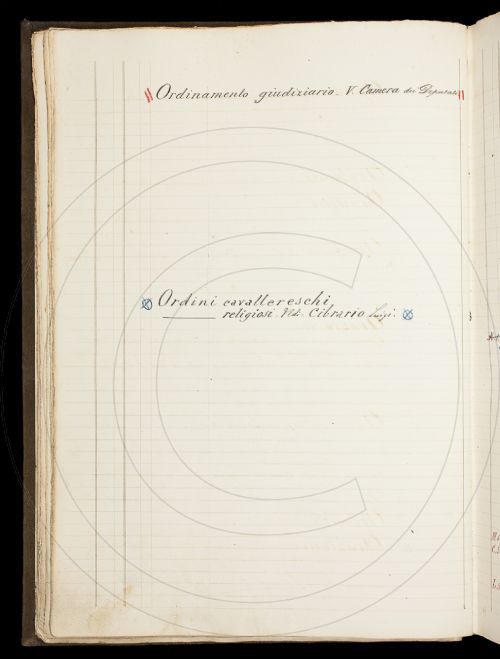 Ordinamento giudiziario. V. Camera dei Deputati
Ordini cavallereschi,
religiosi. Vd. Cibrario Luigi.